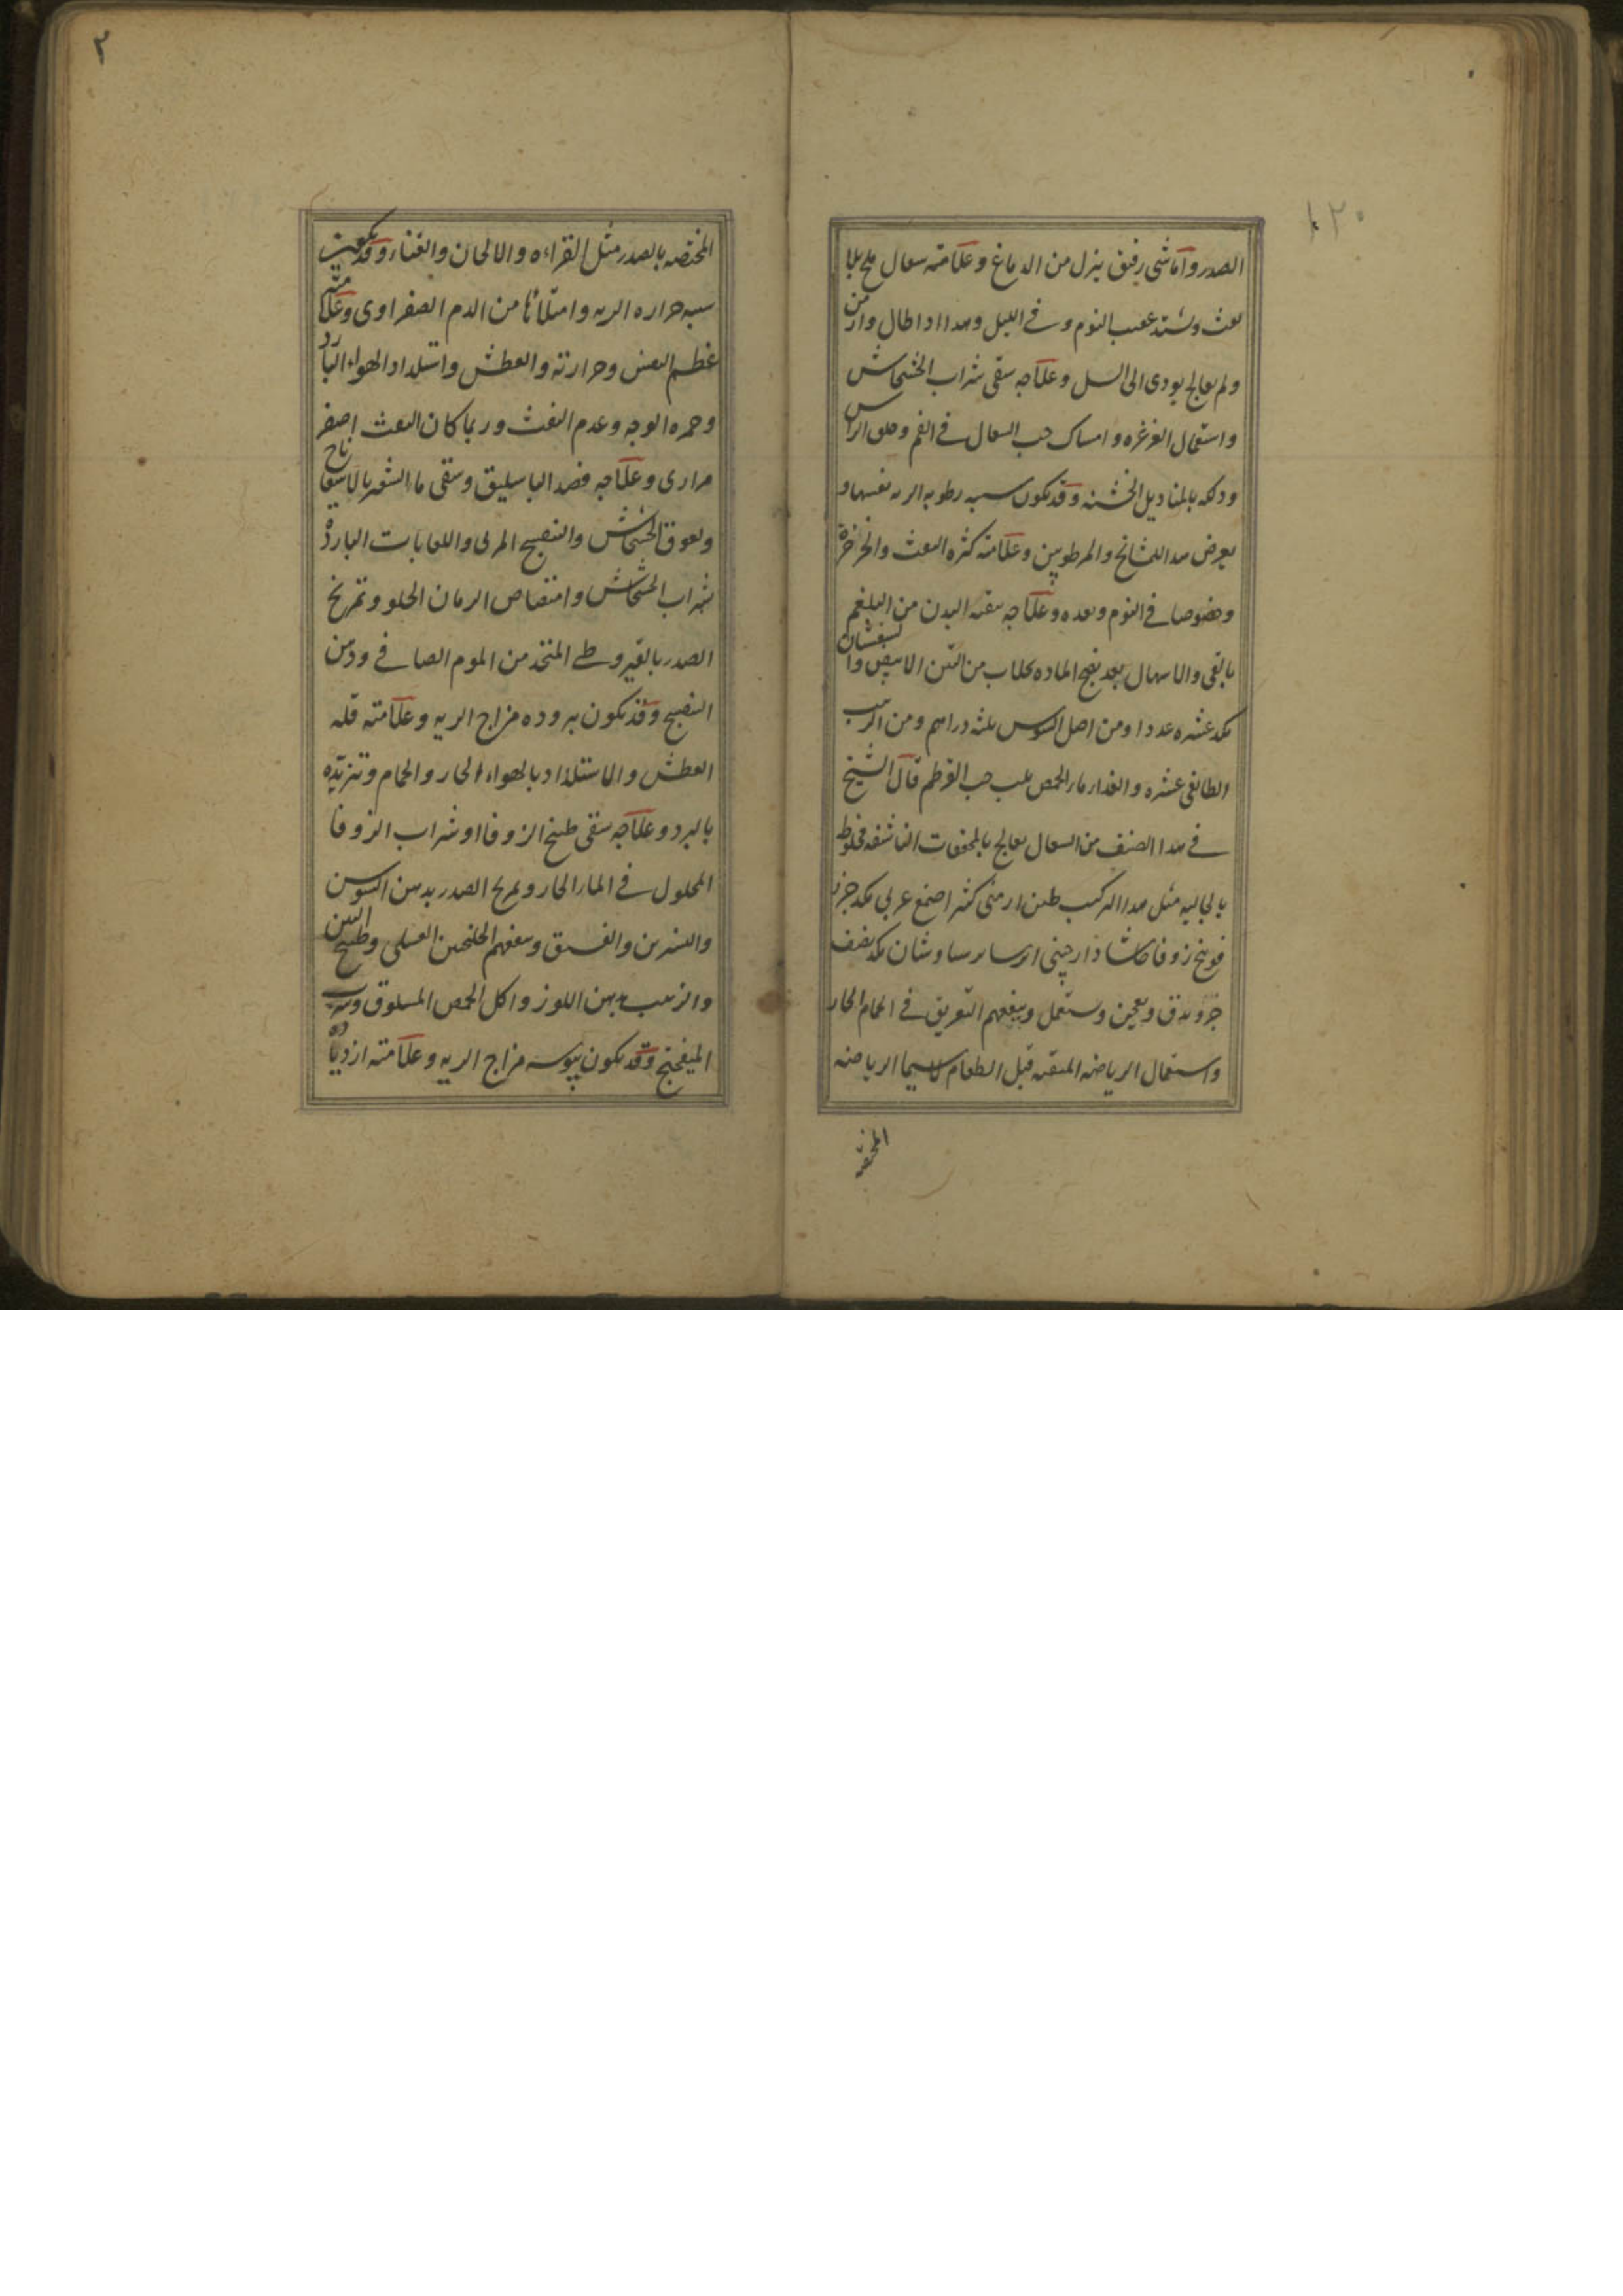 ١٢٠
الصدر واما شی رقیق ینزل من الدماغ وعلامته سعال ملح بلا
نفث ویشتد عقیب النوم وفی اللیل وهذا اذا طال وازمن
ولم یعالج یودی الی السل وعلاجه سقی شراب الخشخاش
واستعمال الغرغره وامساک حب السعال فی الفم وحلق الراس
ودلکه بالمنادیل الخشنه وقد یکون سببه رطوبه الریه نفسها و
یعرض هذا للمشایخ والمرطوبین وعلامته کثره النفث والخرخرة
وخصوصا فی النوم وبعده وعلاجه تنقیه البدن من البلغم
بالقی والاسهال بعد نضج الماده بجلاب من التین الابیض وا
عشره عددا ومن اصل السوس ثلثه دراهم ومن الزبیب
الطایفی عشره والغذا ماء الحمص بلب حب القرطم قال الشیخ
فی هذا الصنف من السعال یعالج بالمجففات الناشفه مخلوط
بالجالیه مثل هذا الترکیب طین ارمنی کثیرا صمغ عربی جزء
فوتنج زوفا حاشا دارچینی برسیاوشان نصف
جزو یدق ویعجن ویستعمل وینفعهم التعریق فی الحمام الحار
واستعمال الریاضه قبل الطعام لاسیما الریاضه
المختصه
٢
المختصه بالصدر مثل القراءه والالحان والغناء وقد یکون
سببه حراره الریه وامتلائها من الدم الصفراوی وعلامته
عظم النفس وحرارته والعطش واستلذاذ الهواء البارد
وحمره الوجه وعدم النفث وربما کان النفث اصفر
مراری وعلاجه فصد الباسلیق وسقی ماء الشعیر بالاسفاناخ
ولعوق الخشخاش والبنفسج المربی واللعابات البارده
شراب الخشخاش وامتصاص الرمان الحلو وتمریخ
الصدر بالقیروطی المتخذ من الموم الصافی ودهن
البنفسج وقد یکون بروده مزاج الریه وعلامته قله
العطش والاستلذاذ بالهواء الحار والحمام وتزیده
بالبرد وعلاجه سقی طبیخ الزوفا او شراب الزوفا
المحلول فی الماء الحار وتمریخ الصدر بدهن السوسن
والنسرین والفستق وینفعهم الجلنجبین العسلی وطبیخ التین
والزبیب بدهن اللوز واکل الحمص المسلوق وشرب
المیفختج وقد یکون یبوسه مزاج الریه وعلامته ازدیاده